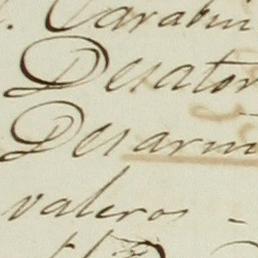 . Carabin
Desator
Desarm
valeros -